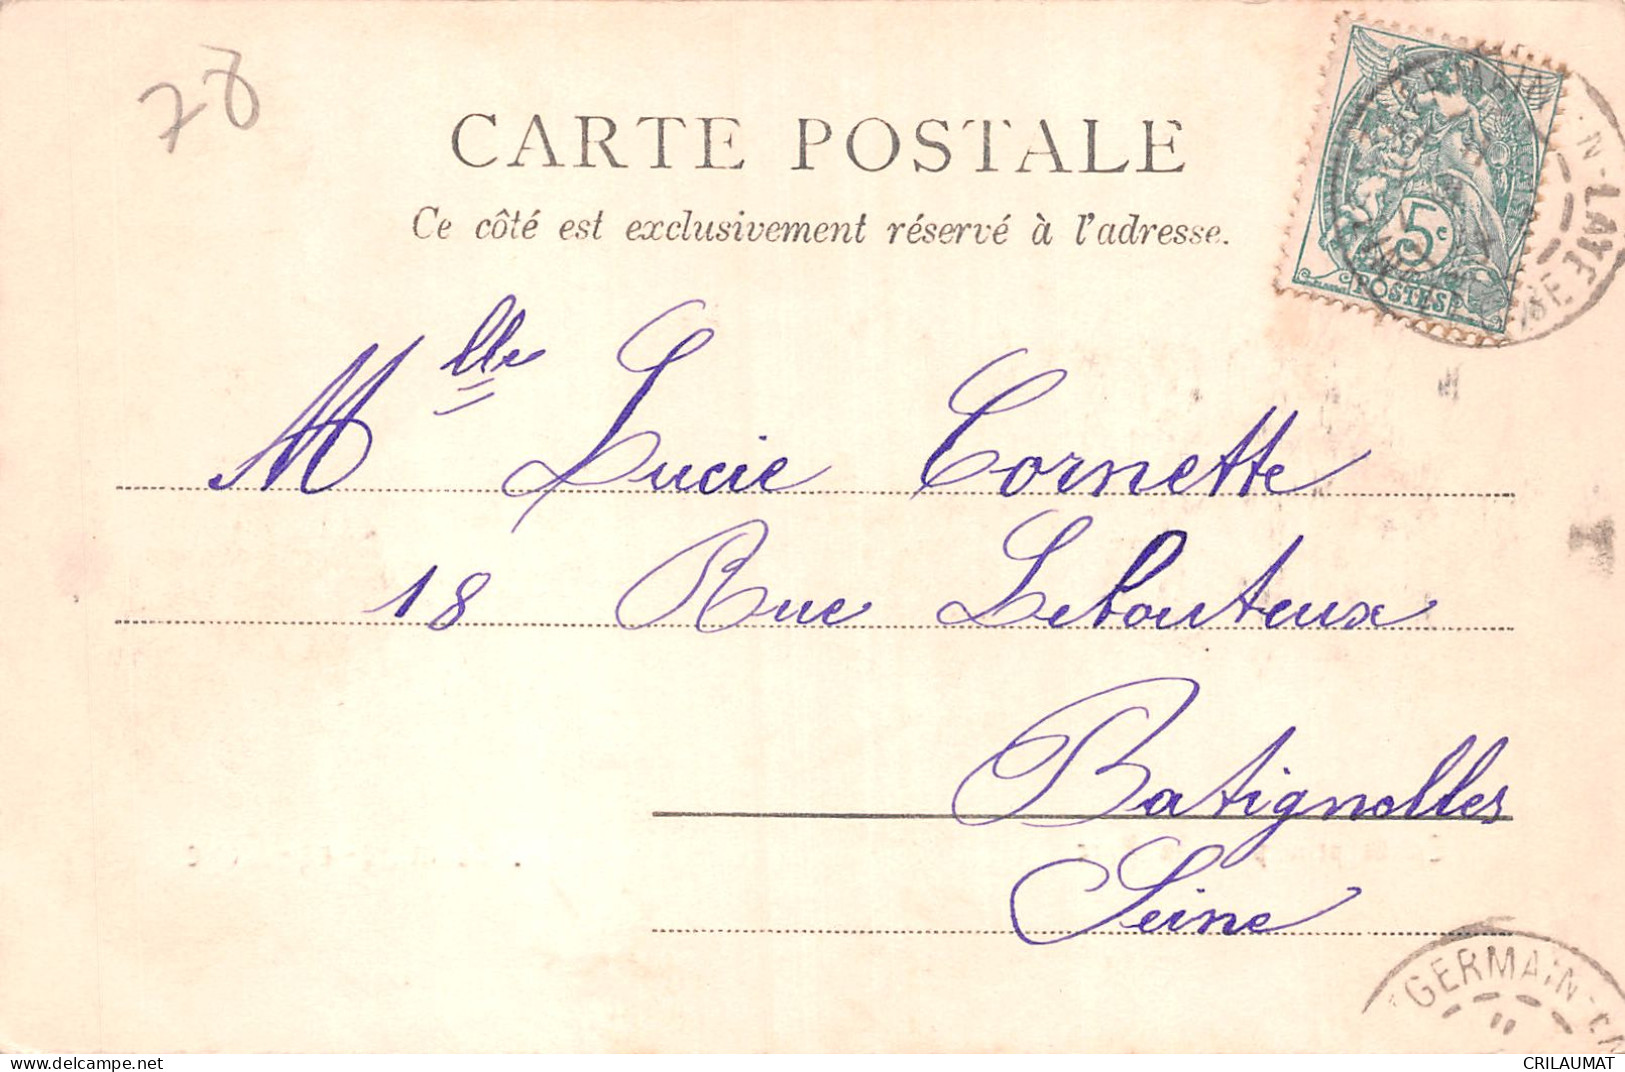 78
CARTE POSTALE
Ce côté est exclusivement réservé à l'adresse.
5c
POSTES
N-LAYE
Mlle Lucie Cornette
18 Rue Lebouteux
T
Batignolles
Seine
GERMAIN-EN
CRILAUMAT